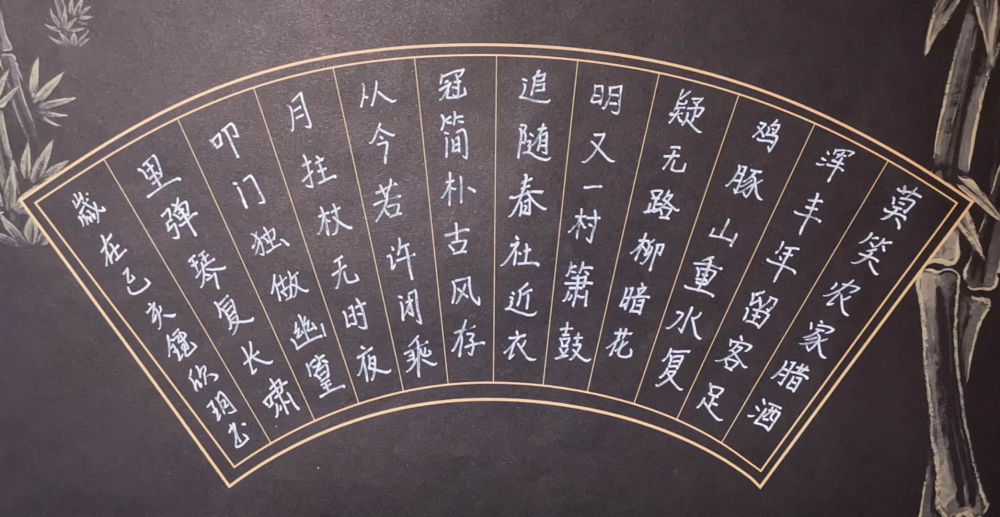 莫笑农家腊酒
浑丰年留客足
鸡豚山重水复
疑无路柳暗花
明又一村箫鼓
追随春社近衣
冠简朴古风存
从今若许闭乘
月拄杖无时夜
叩门独做幽篁
里弹琴复长啸
歲在己亥欣玥书